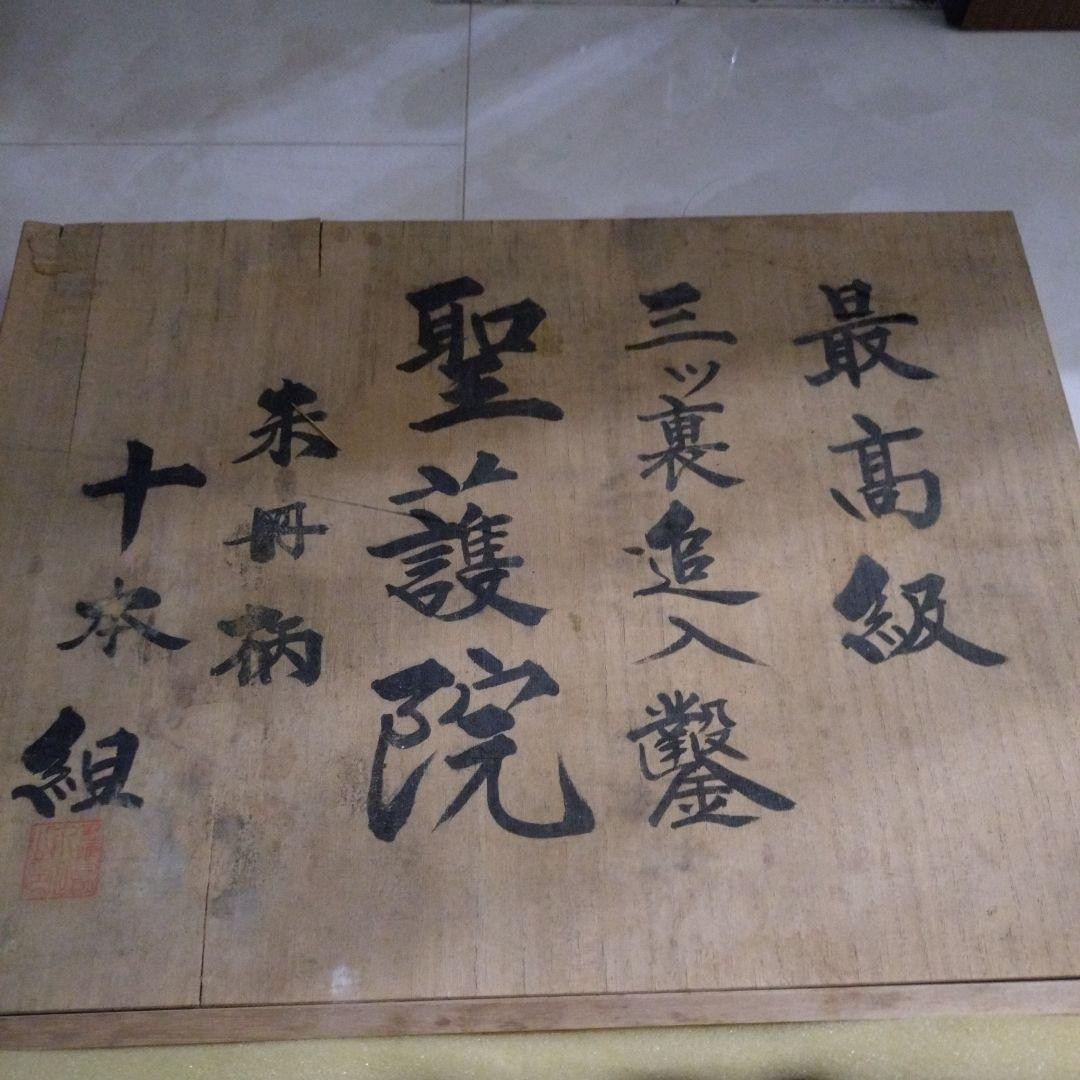 最高級
三ッ裏追入鑿
聖護院
朱冊柄
十本組